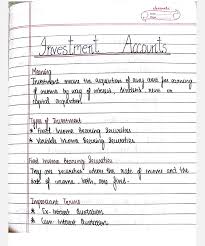 Investment Accounts
Meaning
Investment means the acquisition of any asset for earning
of income by way of interest, dividend, rent or
capital
Types of Investment
* Fixed Income Bearing Securities
* Variable Income Bearing Securities
Fixed Income Bearing Securities
They are securities where the rate of income and the
rate of income both are fixed.
Important Terms
* Ex-Interest Quotation
* Cum-Interest Quotation